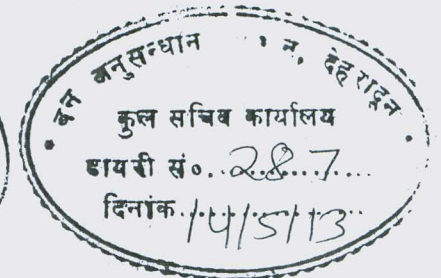 वन अनुसन्धान न, देहरादून
कुल सचिव कार्यालय
डायरी सं०..287....
दिनांक.14/5/13